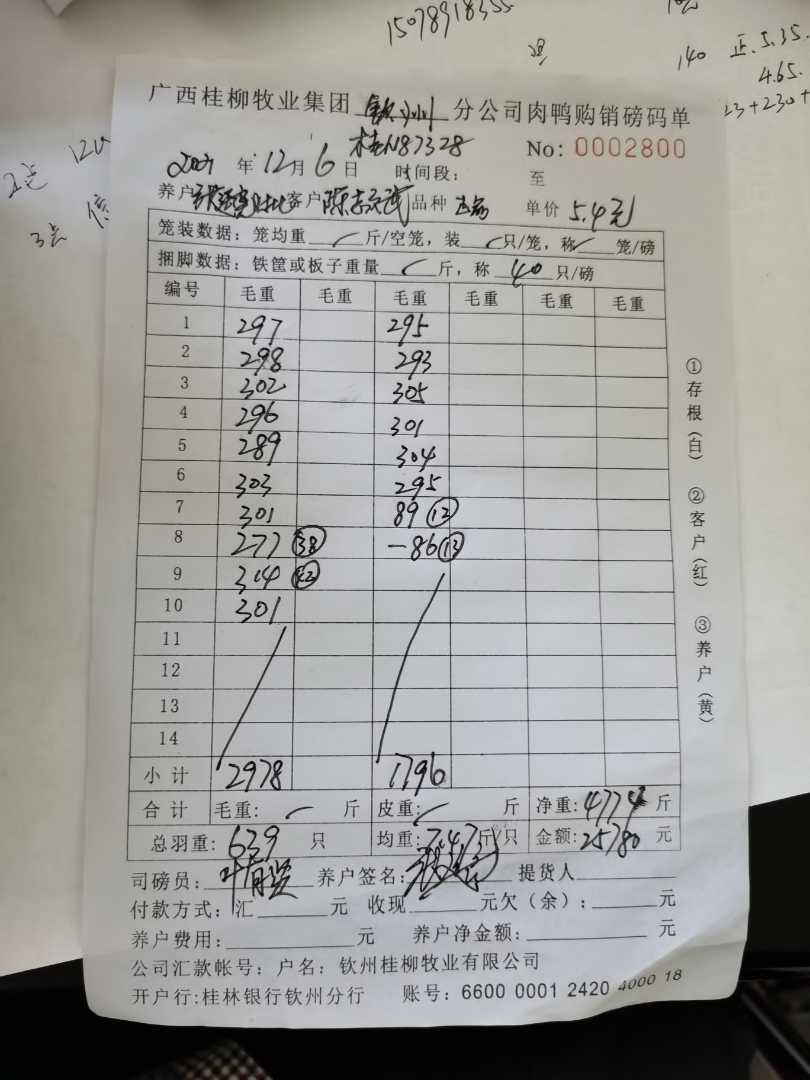 15078918355
140 正.5.35.
4.65.
23+230+
2点
3点
广西桂柳牧业集团 钦州 分公司肉鸭购销磅码单
桂N87328 No: 0002800
2021 年 12 月 6 日 时间段: 至
养户 客户 品种 单价 5.4元
笼装数据: 笼均重 ／ 斤/空笼, 装 ／ 只/笼, 称 ／ 笼/磅
捆脚数据: 铁筐或板子重量 ／ 斤, 称 40 只/磅
编号 毛重 毛重 毛重 毛重 毛重 毛重
1 297 295
2 298 293
3 302 305
4 296 301
5 289 304
6 303 295
7 301 89 (12)
8 277 (38) -86 (13)
9 314 (42)
10 301
11
12
13
14
小计 2978 1796
合计 毛重: ／ 斤 皮重: ／ 斤 净重: 4774 斤
总羽重: 639 只 均重: 7.47 斤/只 金额: 25780 元
司磅员: 养户签名: 提货人
付款方式: 汇 元 收现 元欠(余): 元
养户费用: 元 养户净金额: 元
公司汇款帐号: 户名: 钦州桂柳牧业有限公司
开户行:桂林银行钦州分行 账号: 6600 0001 2420 4000 18
①存根(白) ②客户(红) ③养户(黄)